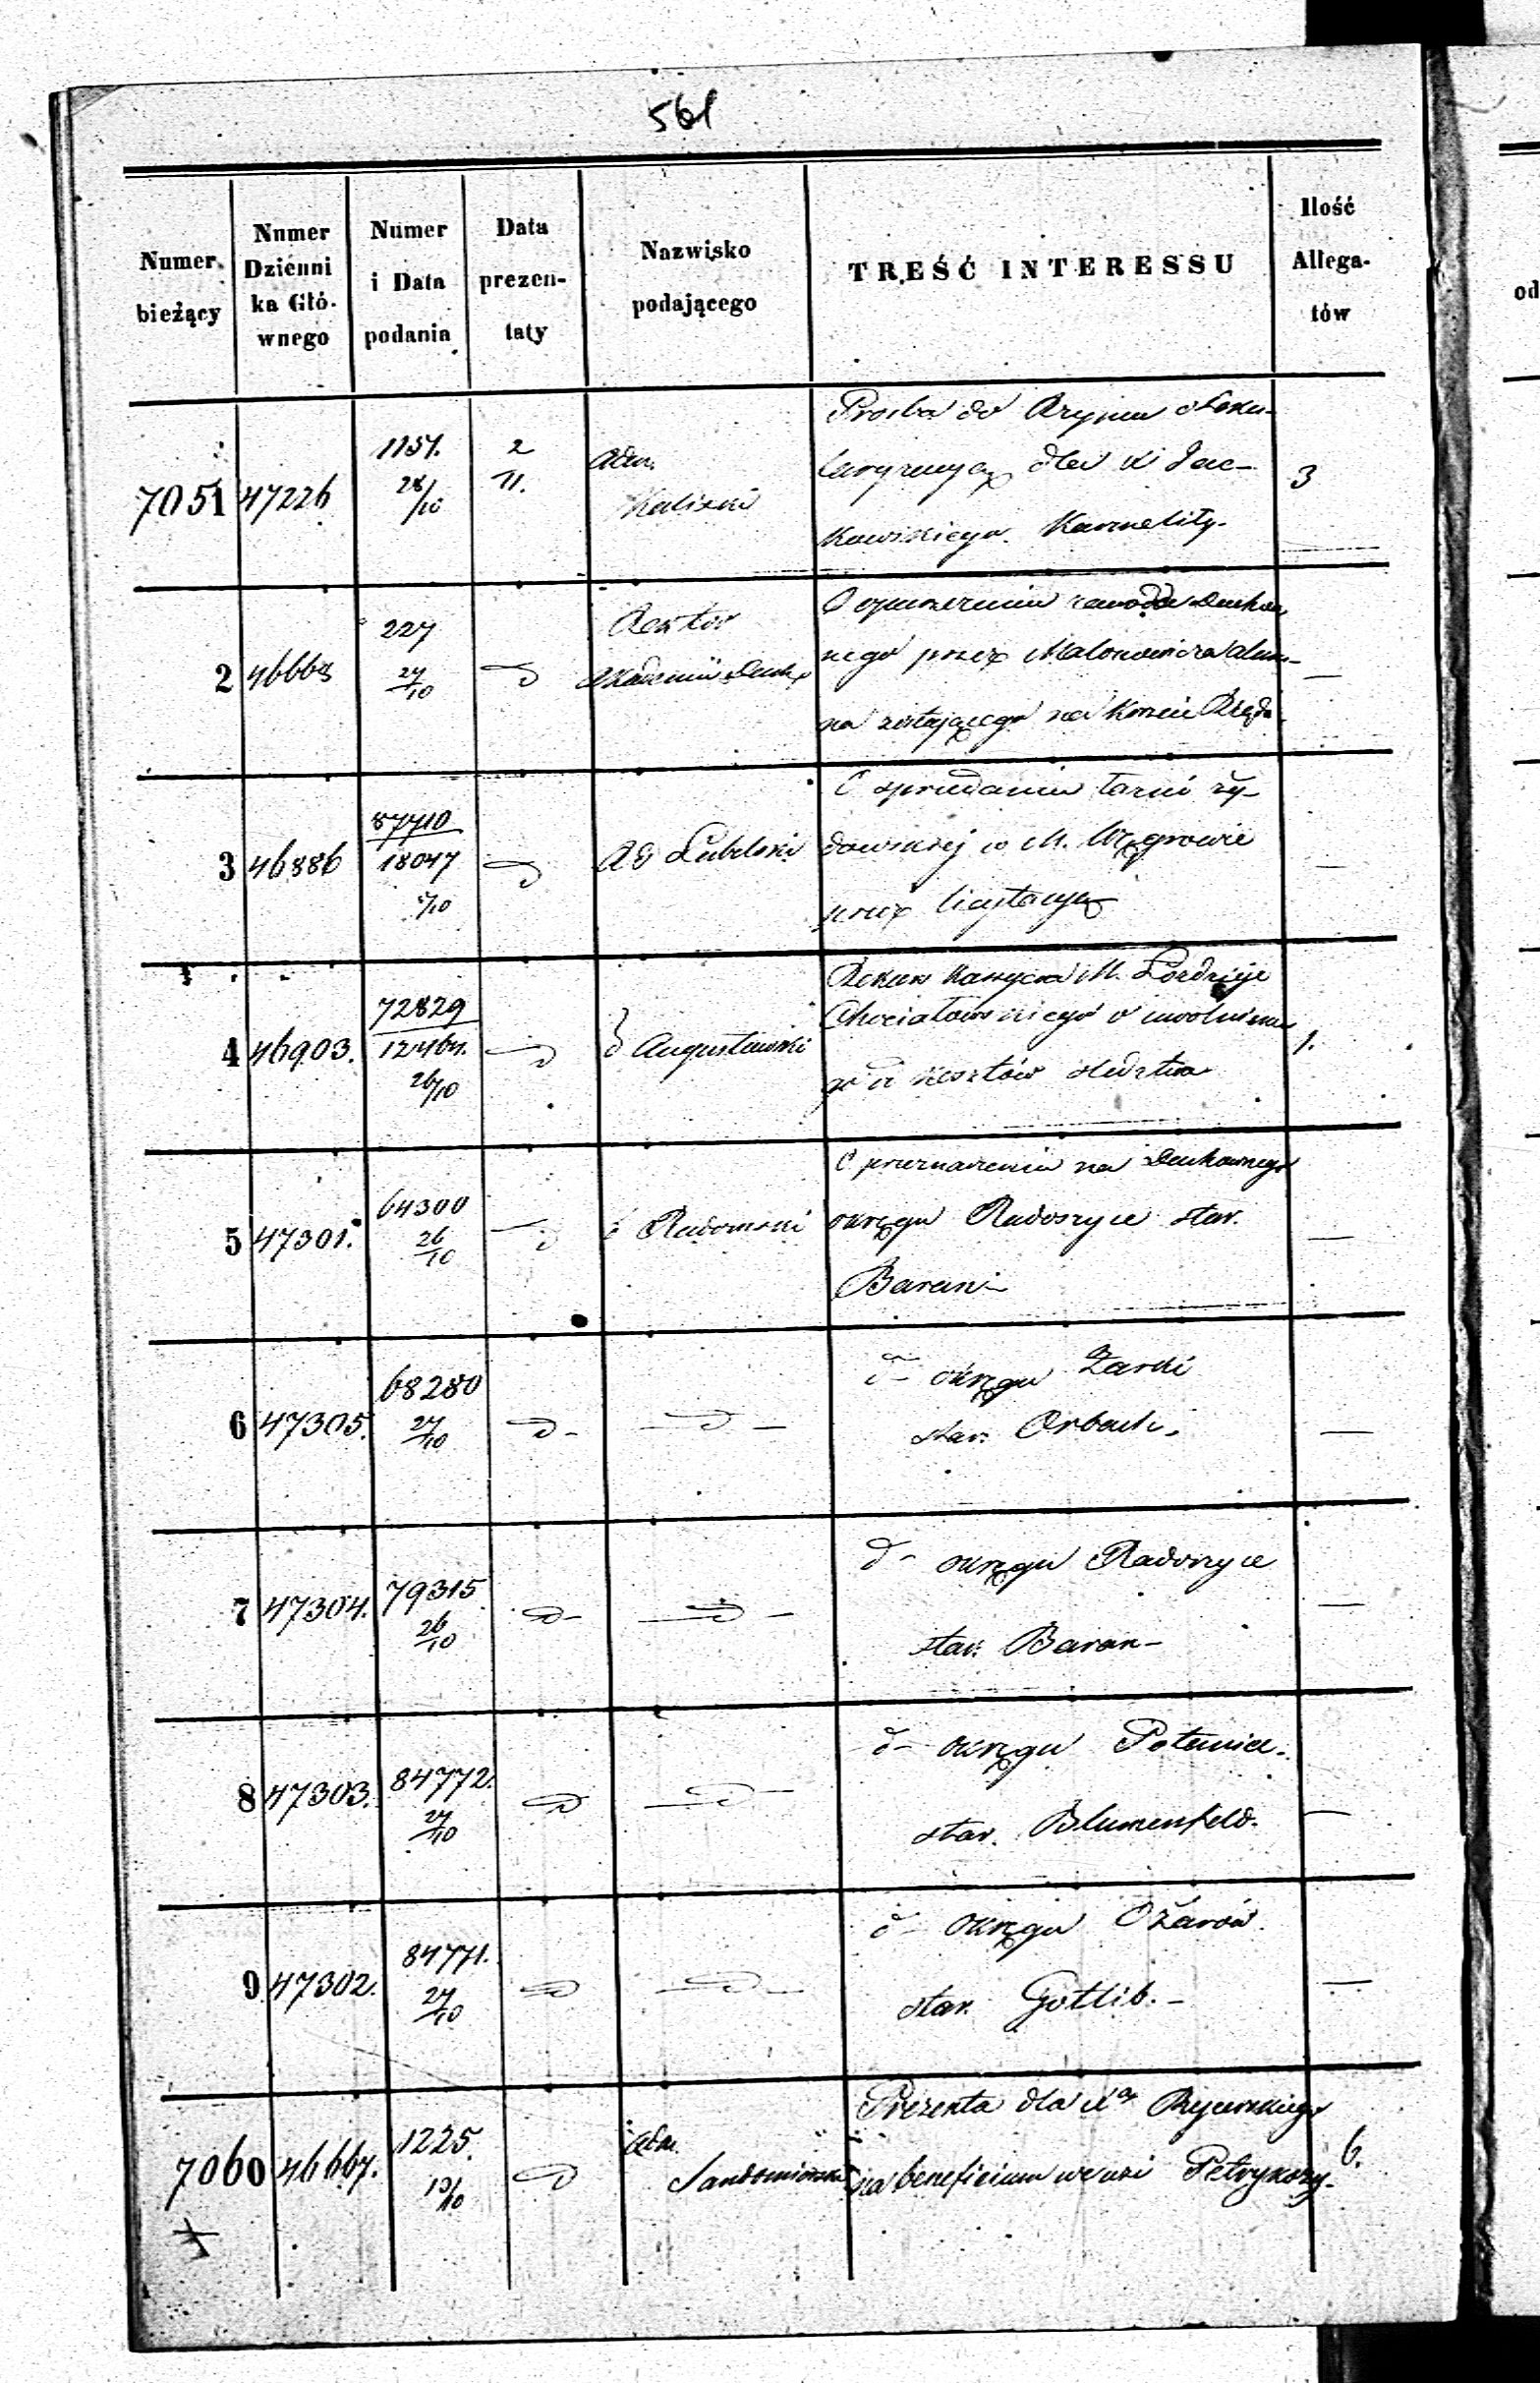 561
Numer bieżący | Numer Dzienni ka Głó- wnego | Numer i Data podania | Data prezen- taty | Nazwisko podającego | TREŚĆ INTERESSU | Ilość Allega- tów
od
7051 | 47226 | 1157. 28/10 | 2 11. | Adm. Kaliski | Prosba do Rzymu o Seku-
laryzacyą dla X Jac-
kowskiego Karmelity. | 3
2 | 46668 | 227 27/10 | d | Rektor Akademii Duch. | O opuszczeniu zawodu Duchow
nego przez Malonowicza alum-
na zostającego na koszcie Rządu | —
3 | 46886 | 87710 18047 5/10 | d | RG Lubelski | O sprzedaniu łazni ży-
dowskiej w M. Węgrowie
przez licytacyą | —
4 | 46903. | 72829 12464. 26/10 | d | d Augustowski | Rekurs Kassyera M. Łozdzieje
Chociałowskiego o uwolnienie
go od kosztów śledztwa | 1.
5 | 47301. | 64300 26/10 | d | d Radomski | O przeznaczeniu na Duchownego
okręgu Radoszyce star.
Baran — | —
6 | 47305. | 68280 27/10 | d - | d - | d - okręgu Żarki
star. Orbach. | —
7 | 47304. | 79315 26/10 | d - | d - | d - okręgu Radoszyce
star. Baran - | —
8 | 47303. | 84772. 27/10 | d | d - | d - okręgu Połaniec.
star. Blumenfeld. | —
9 | 47302. | 84771. 27/10 | d | d - | d - okręgu Ożarów.
star. Gotlib. - | —
7060 | 46667. | 1225. 13/10 | d | Adm. Sandomierski | Prezenta dla Xa
na beneficium we wsi Petrykozy. | 6.